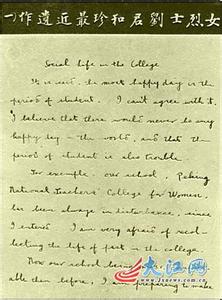 女烈士劉君和珍最近遺作(一)
Social life in the College
It is said, the most happy day is the
period of student. I can't agree with it.
I believe that there would never be any
happy day in the world, and that the
period of student is also trouble.
For exemple, our school, Peking
National Teachers' College for Women,
has been always in disturbance, since
I entered. I am very afraid of recol-
lecting the life of past in the college.
Now our school being
able then before, I am preparing to make
大江网